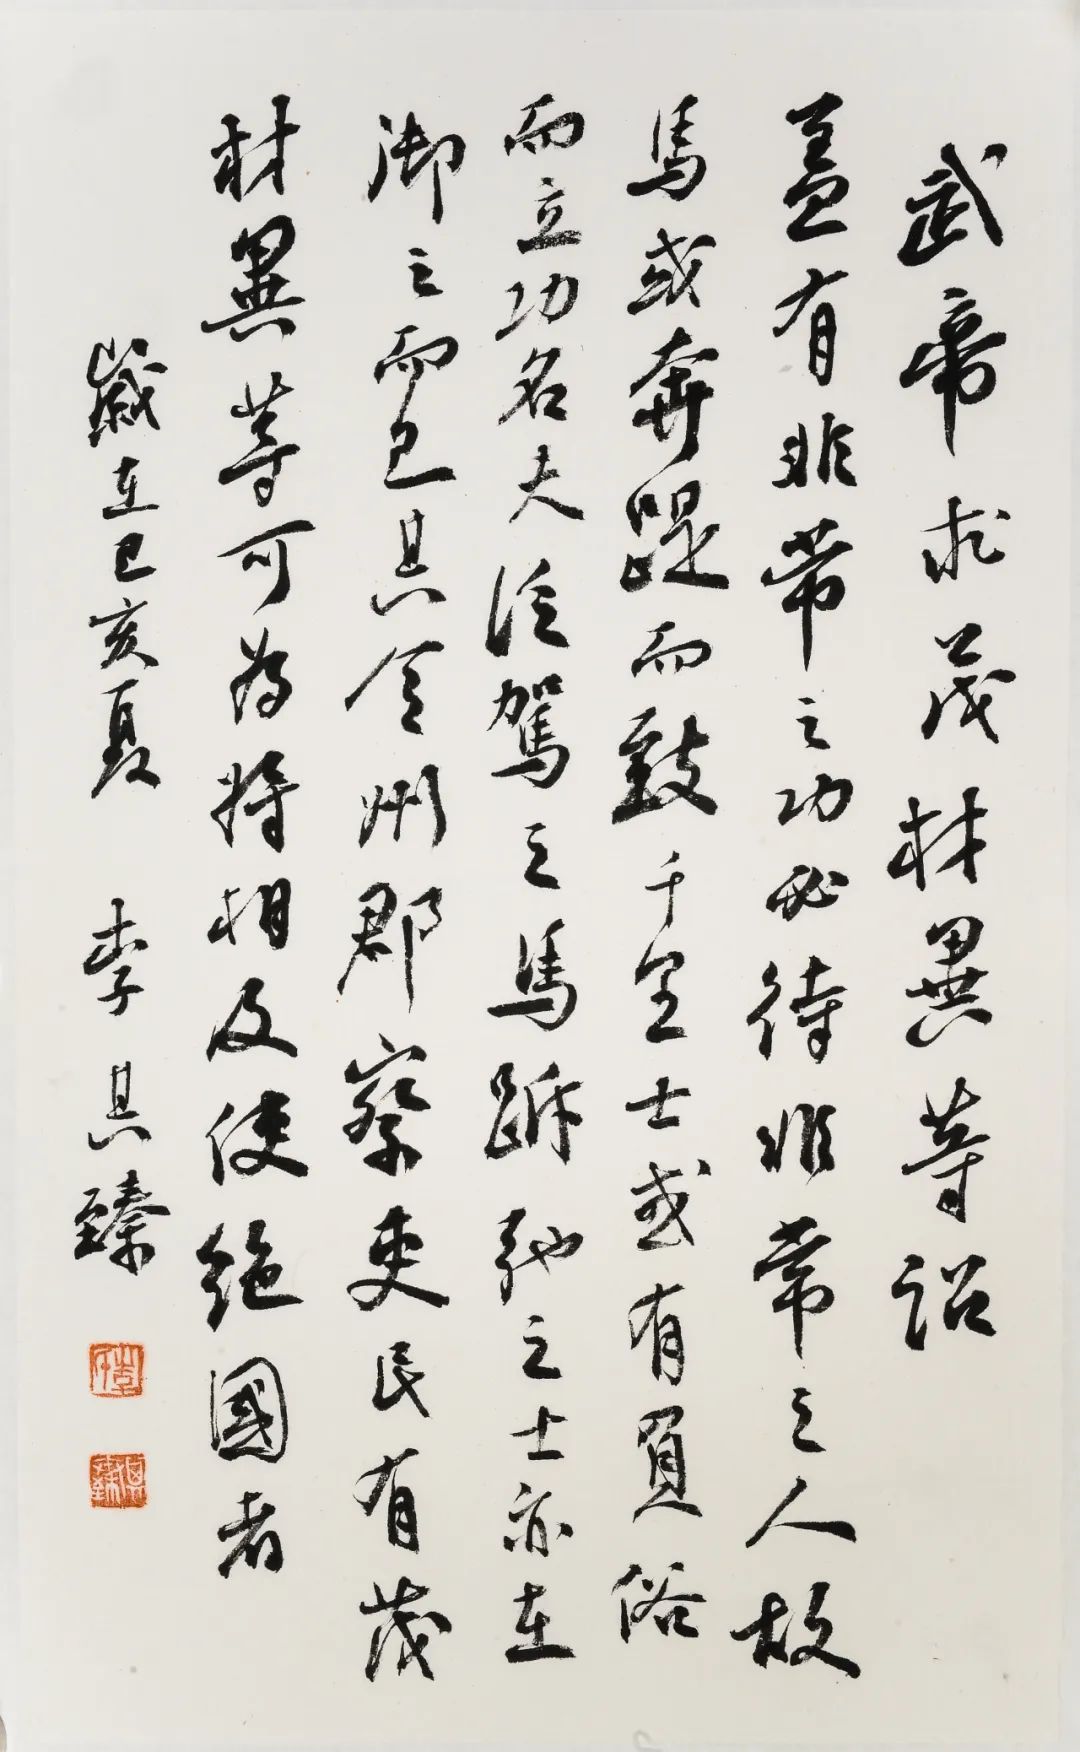 武帝求茂材異等詔
蓋有非常之功必待非常之人故
馬或奔踶而致千里士或有負俗
而立功名夫泛駕之馬跅弛之士亦在
御之而已其令州郡察吏民有茂
材異等可為將相及使絕國者
歲在己亥夏 李其臻
李
其臻